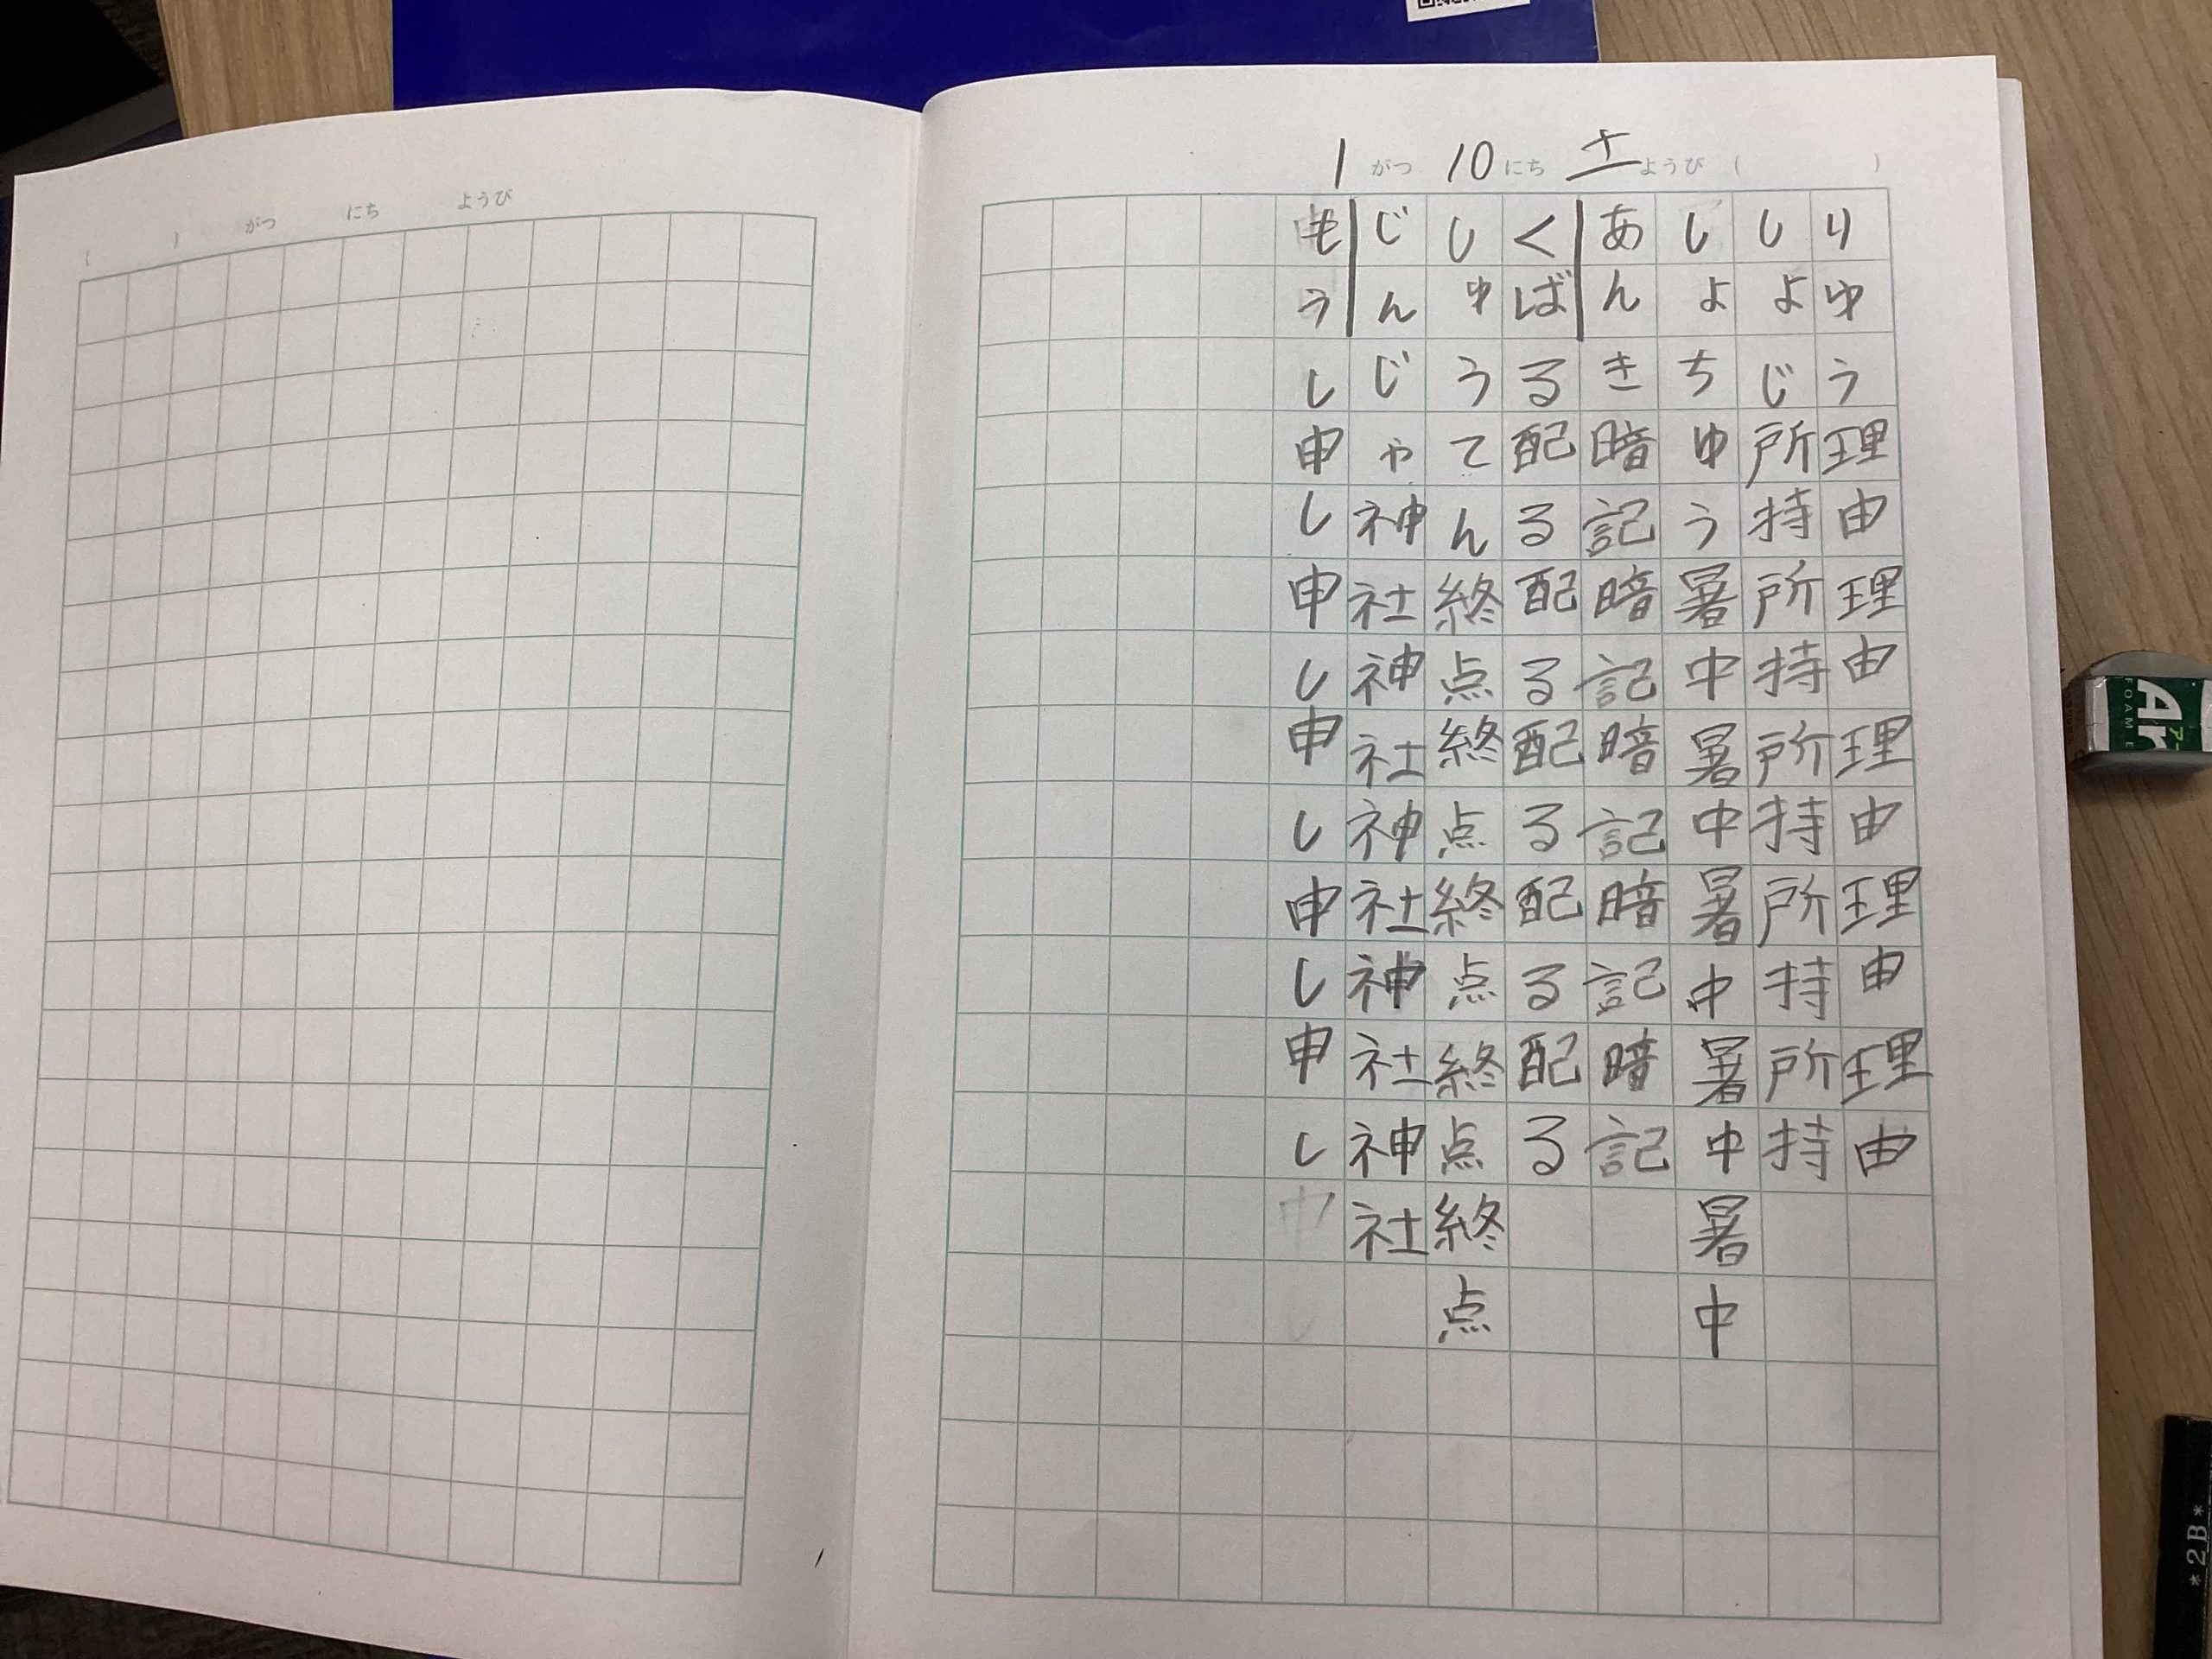 1 がつ 10 にち 土 ようび ( )
りゅう理由理由理由理由理由
しょじ所持所持所持所持所持
しょちゅう暑中暑中暑中暑中暑中
あんき暗記暗記暗記暗記暗記
くばる配る配る配る配る配る
しゅうてん終点終点終点終点終点
じんじゃ神社神社神社神社神社
もうし申し申し申し申し申し
( ) がつ にち ようび
*2B*